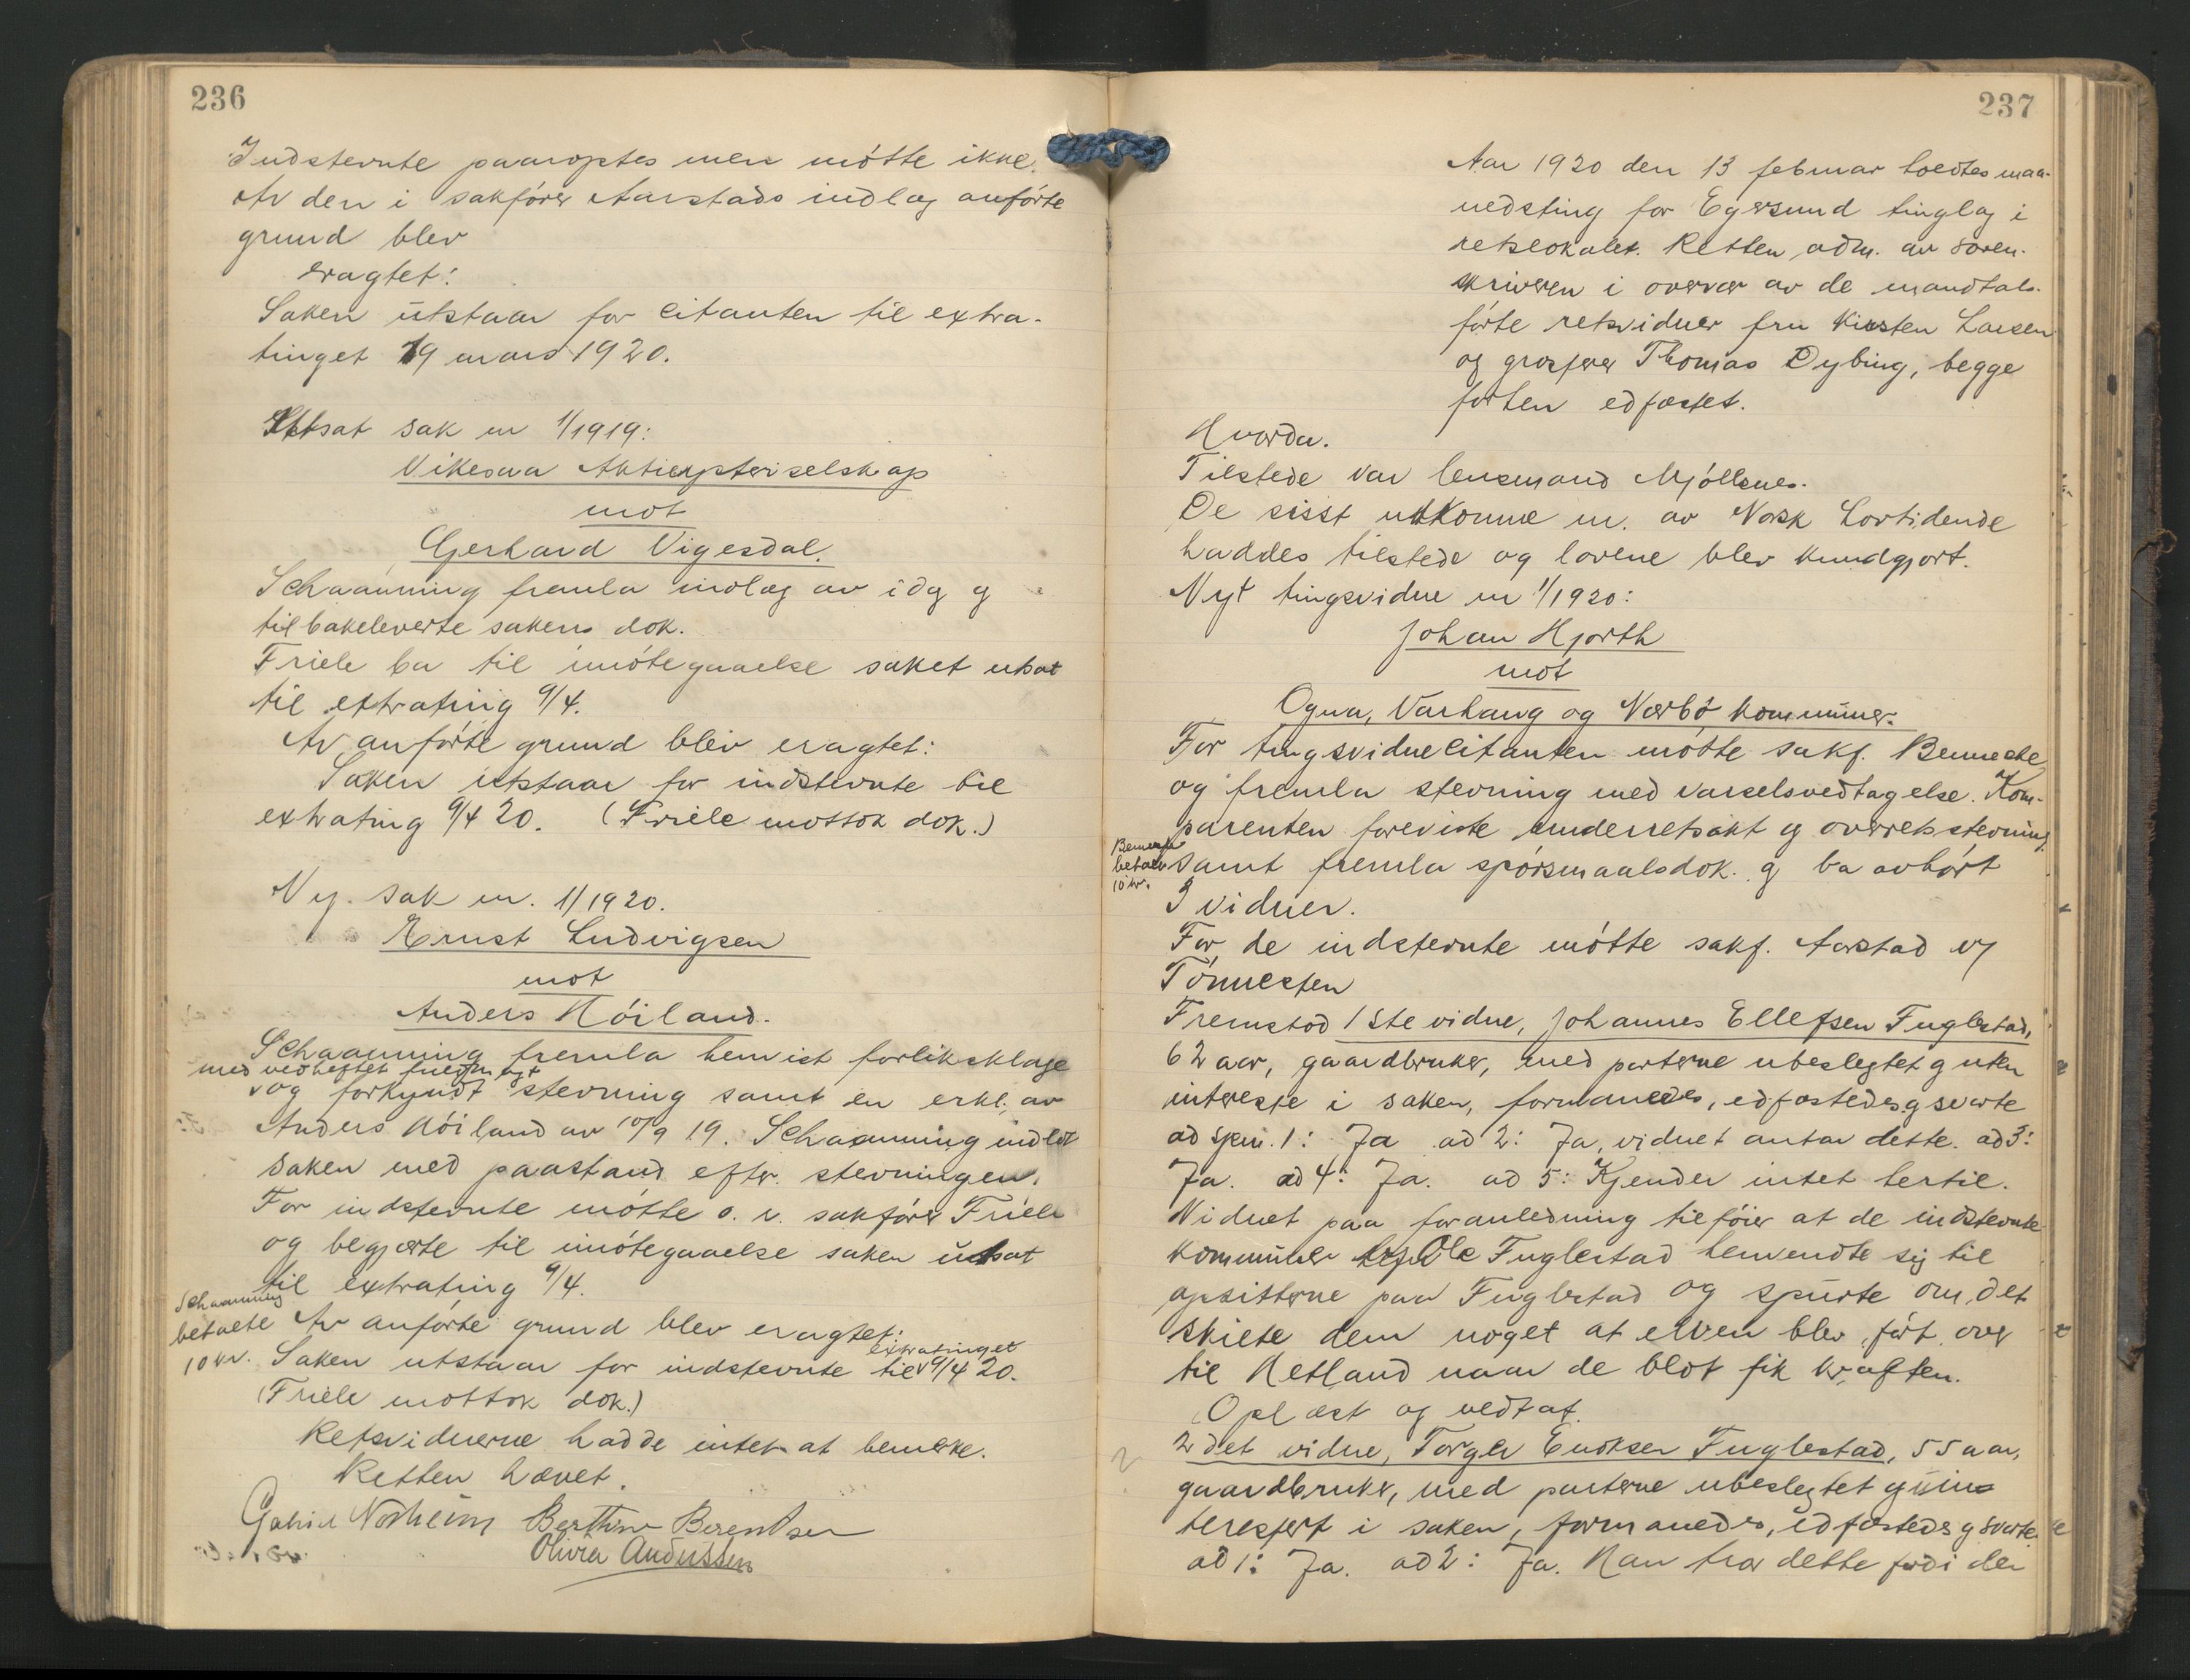 236
Indstevnte paaroptes men møtte ikke.
Av den i sakfører Aarstads indlæg anførte
grund blev
eragtet:
Saken utstaar for citanten til extra-
tinget 19 mars 1920.
Utsat sak nr 1/1919:
Vikesaa Aktieysteriselskap
mot
Gerhard Vigesdal.
Schaanning fremla indlæg av idag og
tilbakeleverte sakens dok.
Friele ba til imøtegaaelse saket utsat
til extrating 9/4.
Av anførte grund blev eragtet:
Saken utstaar for indstevnte til
extrating 9/4 20. (Friele mottok dok.)
Ny. sak nr. 1/1920.
Ernst Ludvigsen
mot
Anders Høiland.
Schaanning fremla henvist forliksklage
med vedheftet fuldmagt
og forkyndt stevning samt en erkl. av
Anders Høiland av 10/9 19. Schaanning indlot
saken med paastand efter stevningen.
For indstevnte møtte o. r. sakfører Friele
og begjærte til imøtegaaelse saken utsat
til extrating 9/4.
Schaanning
betalte Av anførte grund blev eragtet:
extratinget
10 kr. Saken utstaar for indstevnte til 9/4 20.
(Friele mottok dok.)
Retsvidnerne hadde intet at bemerke.
Retten hævet.
Gabriel Nordheim Berthine Berentsen
Olivia Anderssen
237
Aar 1920 den 13 februar holdtes maa-
nedsting for Egersund tinglag i
retslokalet. Retten adm. av soren-
skriveren i overvær av de mandtals-
førte retsvidner fru Kirsten Larsen
og grosserer Thomas Dybing, begge
forhen edfæstet.
Hvorda.
Tilstede var lensmand Mjølsnes.
De sisst utkomne nr. av Norsk Lovtidende
haddes tilstede og lovene blev kundgjort.
Nyt tingsvidne nr 1/1920:
Johan Hjorth
mot
Ogna, Varhaug og Nærbø kommuner.
For tingsvidnecitanten møtte sakf. Benneche
og fremla stevning med varselsvedtagelse. Kom-
parenten foreviste underretsakt og overretsstevning
betalte samt fremla spørsmaalsdok. og ba avhørt
10 kr.
3 vidner.
For de indstevnte møtte sakf. Aarstad og
Tønnessen
Fremstod 1ste vidne, Johannes Ellefsen Fuglestad,
62 aar, gaardbruker, med parterne ubeslegtet og uten
interesse i saken, formanedes, edfæstedes og svarte
ad spm. 1: Ja ad 2: Ja, vidnet antar dette. ad 3:
Ja. ad 4: Ja. ad 5: Kjender intet hertil.
Vidnet paa foranledning tilføier at de indstevnte
kommuner Ole Fuglestad henvendte sig til
opsitterne paa Fuglestad og spurte om det
skilte dem noget at elven blev ført over
til Hetland naar de blot fik kraften.
Oplæst og vedtat.
2det vidne, Torger Enoksen Fuglestad, 55 aar,
gaardbruker, med parterne ubeslegtet og uin-
teressert i saken, formanedes, edfæstedes og svarte
ad 1: Ja. ad 2: Ja. Han tror dette fordi der